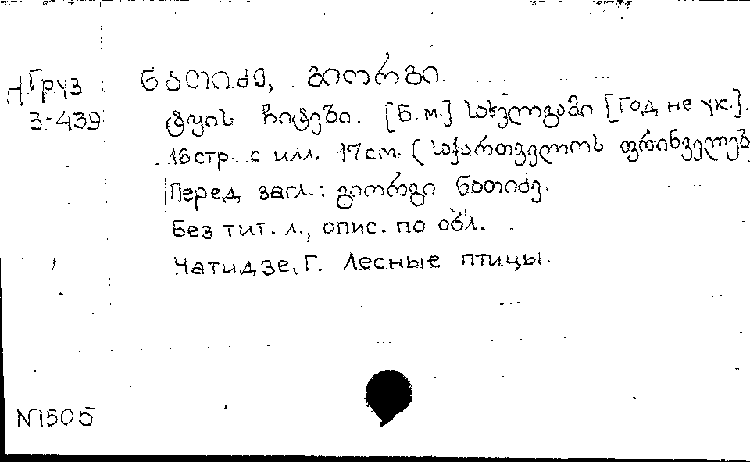 Груз
3-439
ნათიძე, გიორგი.
ტყის ჩიტები. [Б.м.] სახელგამი [Год не ук.].
18стр. с илл. 17см. (საქართველოს ფრინველებ
Перед загл.: გიორგი ნათიძე.
Без тит. л., опис. по обл.
Чатидзе, Г. Лесные птицы.
N1505